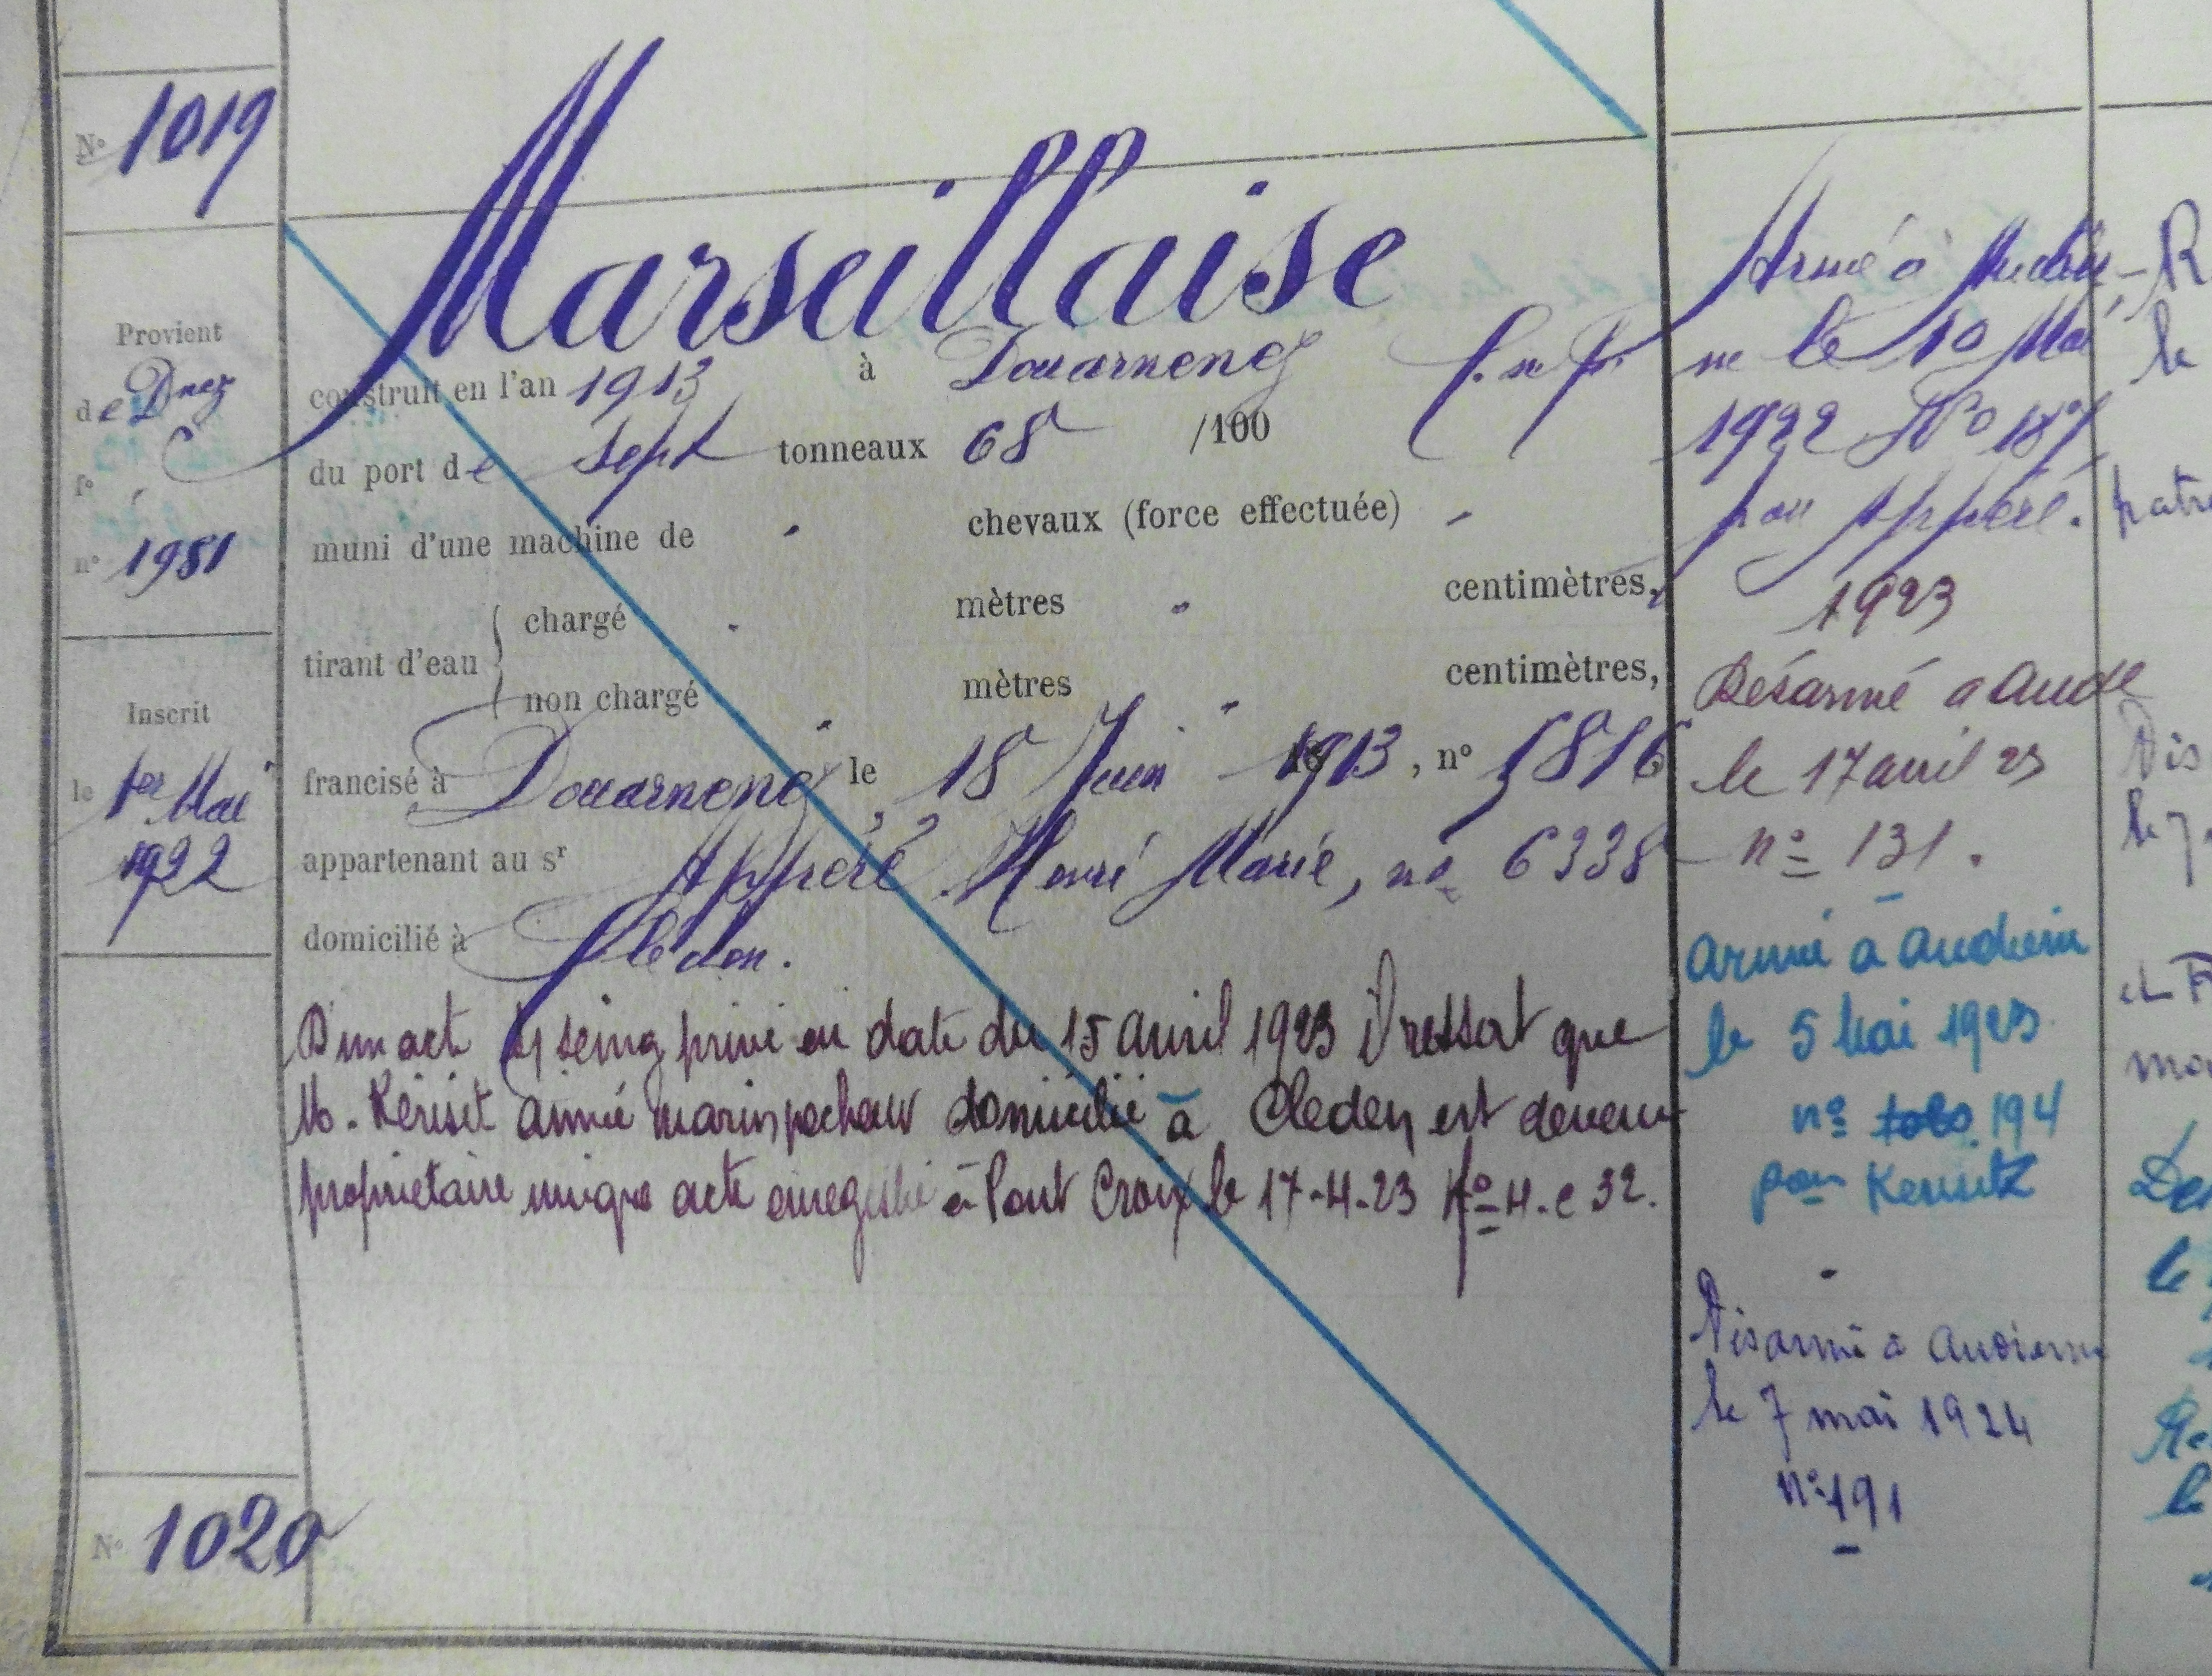 N° 1019
Marseillaise
Provient
de Dnez
f°
n° 1981
Inscrit
le 1er Mai
1922
construit en l'an 1913 à Douarnenez
du port de sept tonneaux 68 /100
muni d'une machine de " chevaux (force effectuée) "
tirant d'eau { chargé " mètres " centimètres,
non chargé " mètres " centimètres,
francisé à Douarnenez, le 18 Juin 1913, n° 5816
appartenant au sr Appéré Henri Marie, n° 6338
domicilié à Cleden.
D'un acte s/ seing privé en date du 15 avril 1923 il ressort que
M. Kérisit aimé marin pecheur domicilié à Cleden est devenu
propriétaire unique acte enregistré à Pont Croix le 17-4-23 f° 4. c 32.
Armé à Audier-
ne le 10 Mai
1922 N° 187
par Appéré.
1923
Désarmé a Aude
le 17 avril 23
n° 131.
armé à audierne
le 5 Mai 1923
n° 194
par Kerisit
Désarmé à Audierne
le 7 mai 1924
n° 191
R
le
patro
Dis
le 7
et F
mo
De
le
Re
le
N° 1020